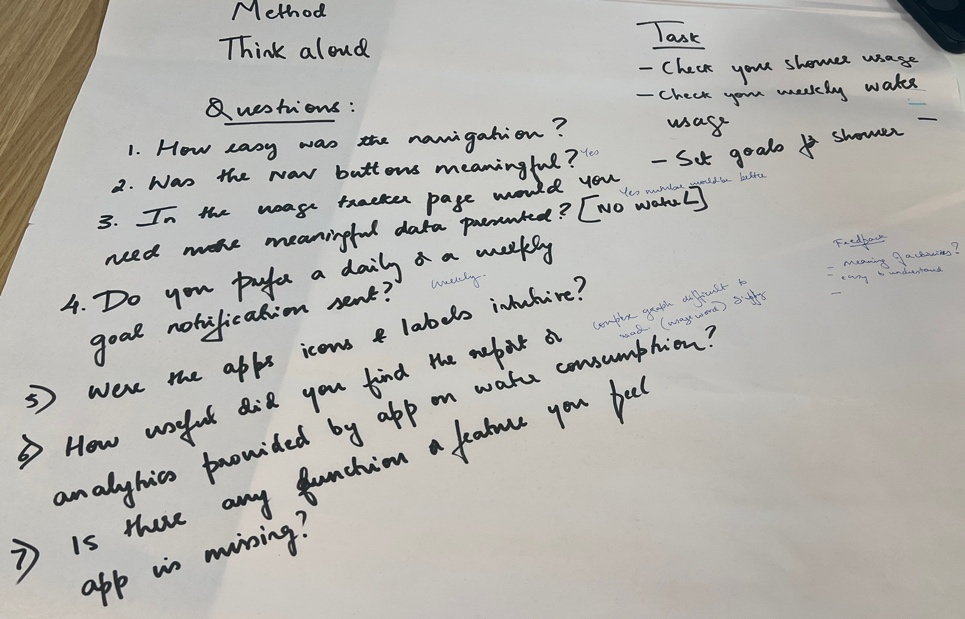 Method
Think aloud
Questions:
1. How easy was the navigation?
2. Was the Nav buttons meaningful? Yes
3. In the usage tracker page would you
need more meaningful data presented? [No water]
Yes number would be better
4. Do you prefer a daily or a weekly
goal notification sent? weekly.
5) Were the apps icons & labels intuitive?
6) How useful did you find the report or
analytics provided by app on water consumption?
complex graph difficult to
read. (usage word)
7) Is there any function or feature you feel
app is missing?
Task
- Check your shower usage
- Check your weekly water
usage
- Set goals for shower -
Feedback
- meaning of
- easy to understand
-